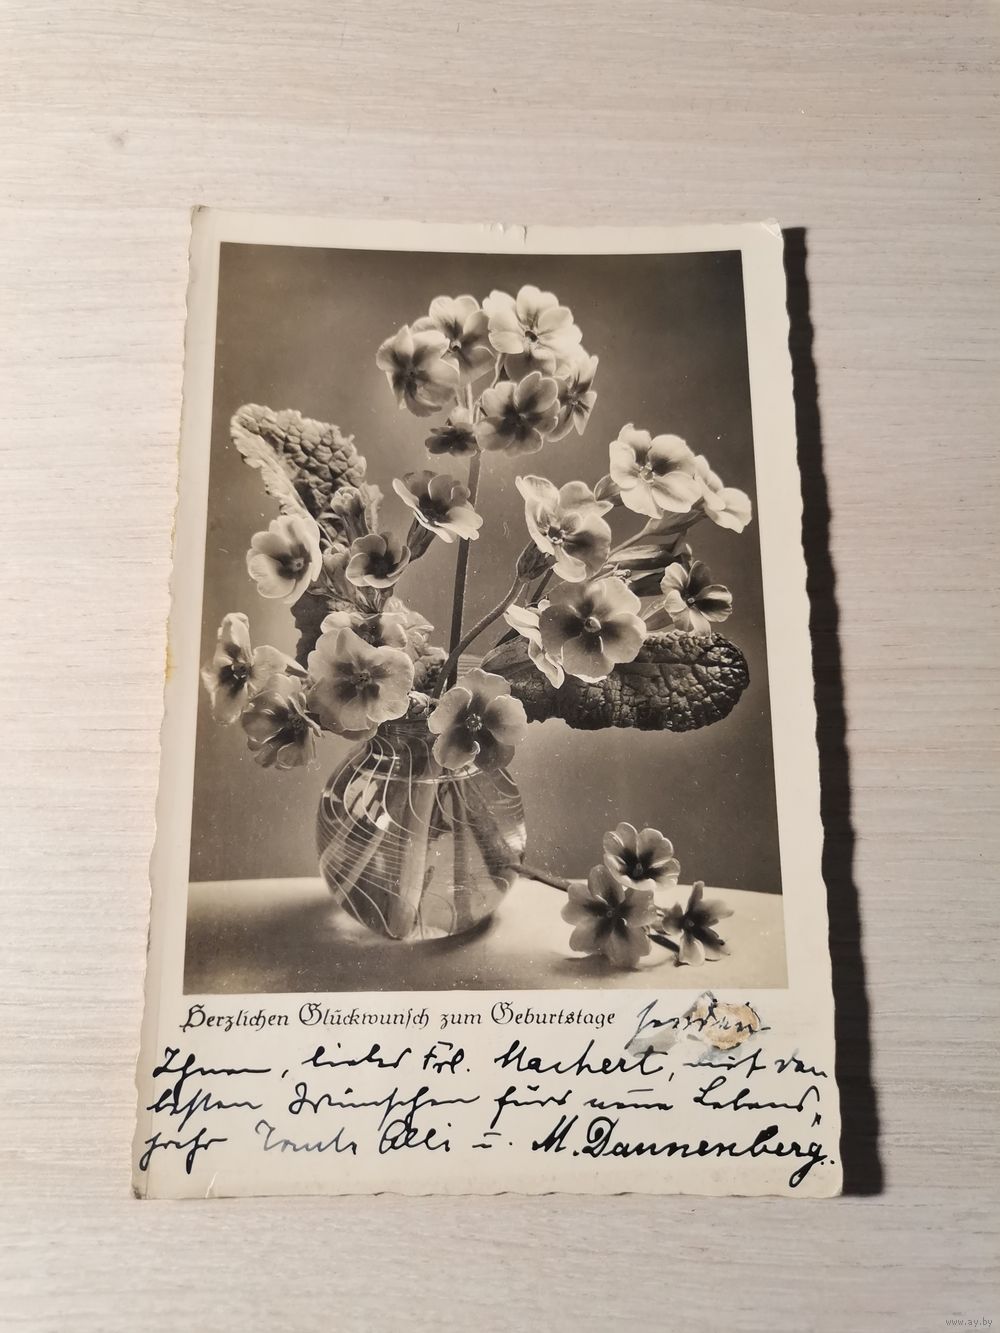 Herzlichen Glückwunsch zum Geburtstage senden
Ihnen, liebes Frl. Machert, mit den
besten Wünschen fürs neue Lebens„
jahr Tante Elli u. M. Dannenberg.
www.ay.by